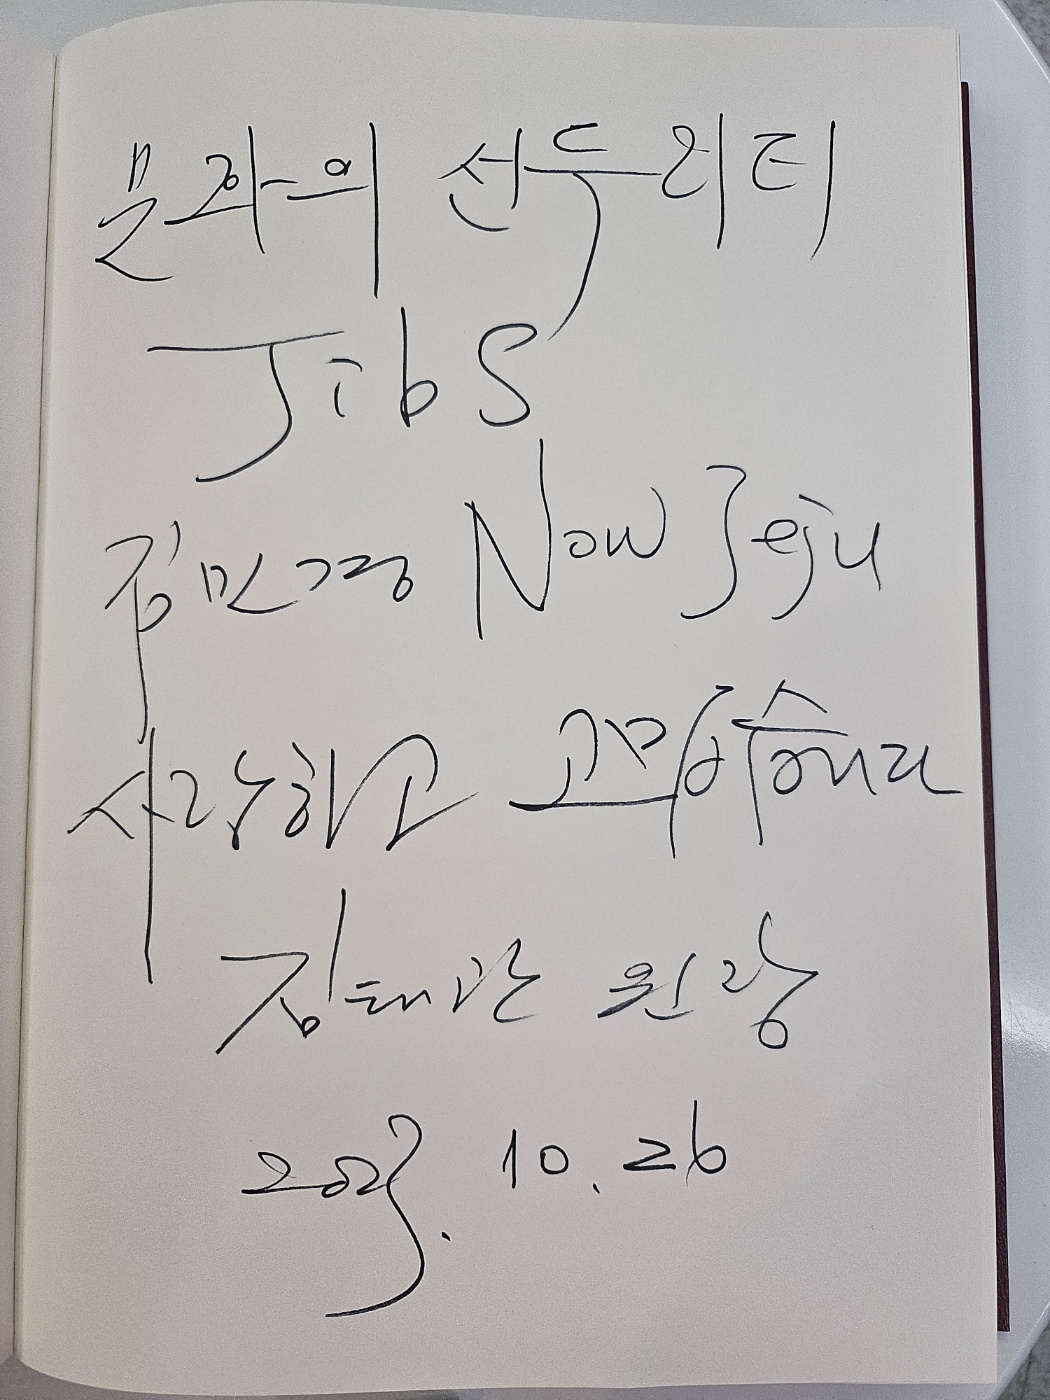 문화의 선두리더
JibS
김민경 Now Jeju
사랑하고
김태관 원장
2023. 10. 26